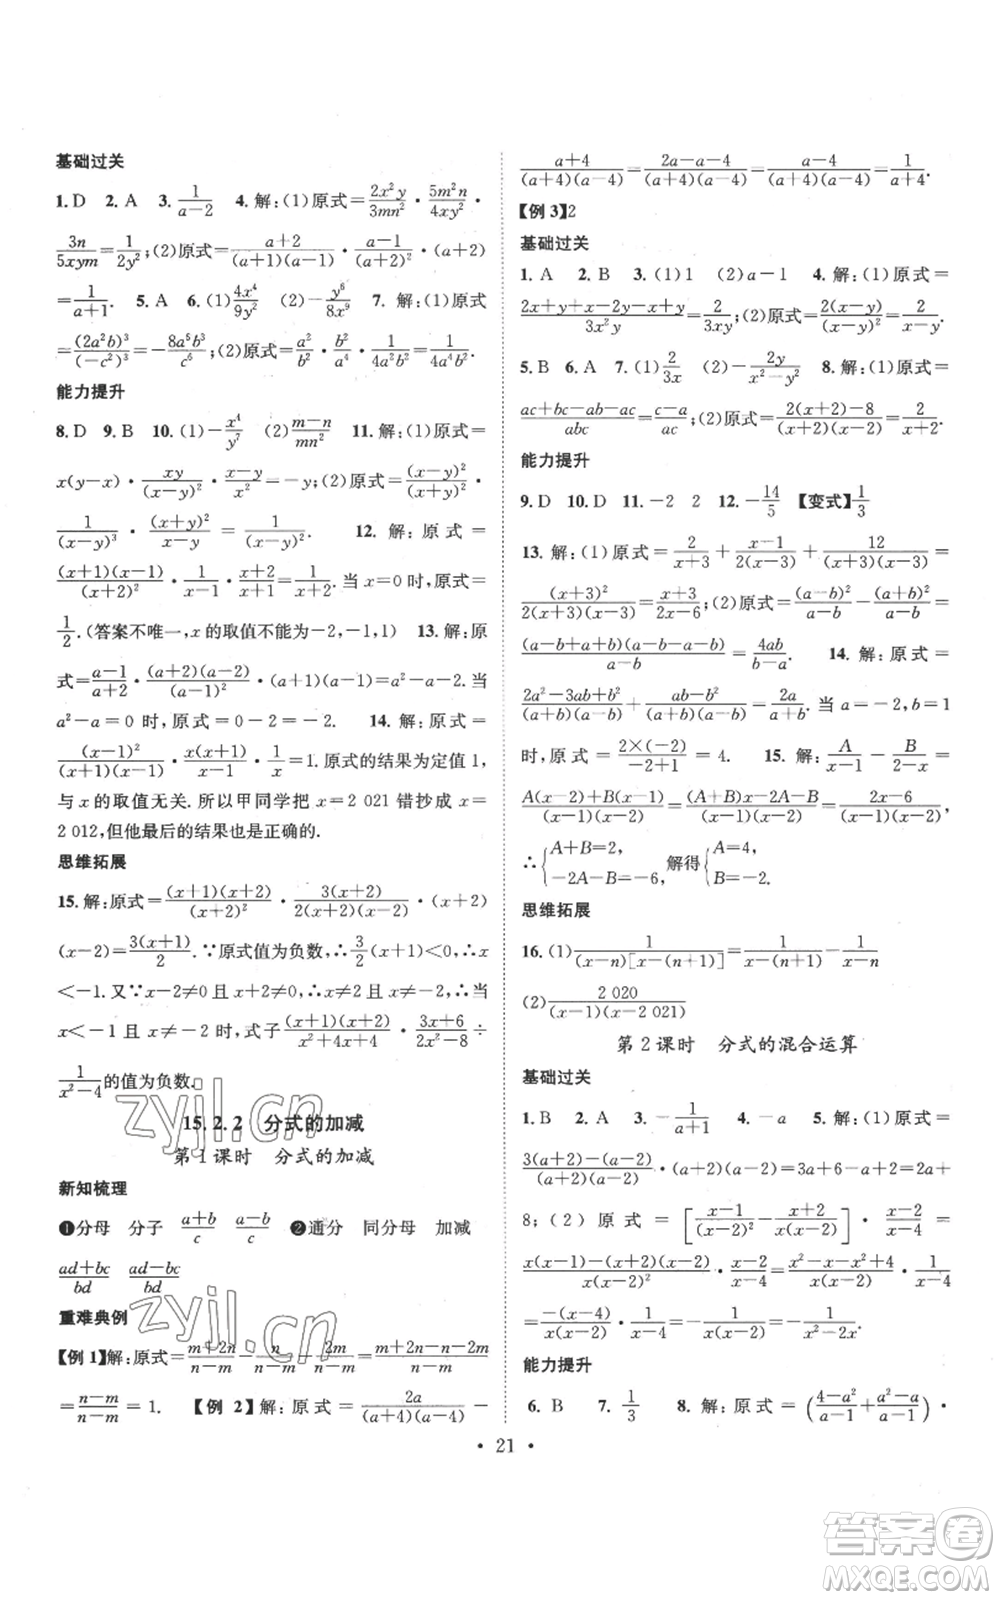 基础过关
1. D 2. A 3. 1/(a-2) 4. 解:(1)原式=2x²y/3mn²·5m²n/4xy²·
3n/5xym=1/2y²;(2)原式=(a+2)/((a+1)(a-1))·(a-1)/(a+2)²·(a+2)
=1/(a+1). 5. A 6. (1)4x⁴/9y² (2)-y⁶/8x⁹ 7. 解:(1)原式
=(2a²b)³/(-c²)³=-8a⁶b³/c⁶;(2)原式=a²/b²·b²/a⁴·1/4a²b²=1/4a⁴b².
能力提升
8. D 9. B 10. (1)-x⁴/y⁷ (2)(m-n)/mn² 11. 解:(1)原式=
x(y-x)·xy/(x-y)²·(x-y)/x²=-y;(2)原式=(x-y)²/(x+y)²·
1/(x-y)³·(x+y)²/(x-y)=1/(x-y)². 12. 解:原式=
(x+1)(x-1)/(x+2)²·1/(x-1)·(x+2)/(x+1)=1/(x+2). 当 x=0 时,原式=
1/2. (答案不唯一,x 的取值不能为-2,-1,1) 13. 解:原
式=(a-1)/(a+2)·(a+2)(a-2)/(a-1)²·(a+1)(a-1)=a²-a-2. 当
a²-a=0 时,原式=0-2=-2. 14. 解:原式=
(x-1)²/((x+1)(x-1))·x(x+1)/(x-1)·1/x=1. 原式的结果为定值 1,
与 x 的取值无关. 所以甲同学把 x=2 021 错抄成 x=
2 012,但他最后的结果也是正确的.
思维拓展
15. 解:原式=(x+1)(x+2)/(x+2)²·3(x+2)/(2(x+2)(x-2))·(x+2)
(x-2)=3(x+1)/2. ∵原式值为负数,∴3/2(x+1)<0,∴x
<-1. 又∵x-2≠0 且 x+2≠0,∴x≠2 且 x≠-2,∴当
x<-1 且 x≠-2 时,式子(x+1)(x+2)/(x²+4x+4)·(3x+6)/(2x²-8)÷
1/(x²-4)的值为负数.
15.2.2 分式的加减
第 1 课时 分式的加减
新知梳理
❶分母 分子 (a+b)/c (a-b)/c ❷通分 同分母 加减
(ad+bc)/bd (ad-bc)/bd
重难典例
【例 1】解:原式=(m+2n)/(n-m)-n/(n-m)-2m/(n-m)=(m+2n-n-2m)/(n-m)
=(n-m)/(n-m)=1. 【例 2】解:原式=2a/((a+4)(a-4))-
(a+4)/((a+4)(a-4))=(2a-a-4)/((a+4)(a-4))=(a-4)/((a+4)(a-4))=1/(a+4).
【例 3】2
基础过关
1. A 2. B 3. (1)1 (2)a-1 4. 解:(1)原式=
(2x+y+x-2y-x+y)/3x²y=2/3xy;(2)原式=2(x-y)/(x-y)²=2/(x-y).
5. B 6. A 7. (1)2/3x (2)-2y/(x²-y²) 8. 解:(1)原式=
(ac+bc-ab-ac)/abc=(c-a)/ac;(2)原式=(2(x+2)-8)/((x+2)(x-2))=2/(x+2).
能力提升
9. D 10. D 11. -2 2 12. -14/5 【变式】1/3
13. 解:(1)原式=2/(x+3)+(x-1)/(2(x-3))+12/((x+3)(x-3))=
(x+3)²/(2(x+3)(x-3))=(x+3)/(2x-6);(2)原式=(a-b)²/(a-b)-(a+b)²/(a-b)=
(a-b+a+b)(a-b-a-b)/(a-b)=4ab/(b-a). 14. 解:原式=
(2a²-3ab+b²)/((a+b)(a-b))+(ab-b²)/((a+b)(a-b))=2a/(a+b). 当 a=-2,b=1
时,原式=2×(-2)/(-2+1)=4. 15. 解:A/(x-1)-B/(2-x)=
(A(x-2)+B(x-1))/((x-1)(x-2))=((A+B)x-2A-B)/((x-1)(x-2))=(2x-6)/((x-1)(x-2)),
∴{A+B=2, -2A-B=-6, 解得{A=4, B=-2.
思维拓展
16. (1)1/((x-n)[x-(n+1)])=1/(x-(n+1))-1/(x-n)
(2)2 020/((x-1)(x-2 021))
第 2 课时 分式的混合运算
基础过关
1. B 2. A 3. -1/(a+1) 4. -a 5. 解:(1)原式=
(3(a+2)-(a-2))/((a-2)(a+2))·(a+2)(a-2)=3a+6-a+2=2a+
8;(2)原式=[(x-1)/(x-2)²-(x+2)/(x(x-2))]·(x-2)/(x-4)=
(x(x-1)-(x+2)(x-2))/(x(x-2)²)·(x-2)/(x-4)=(x²-x-x²+4)/(x(x-2))·1/(x-4)
=-(x-4)/(x(x-2))·1/(x-4)=-1/(x(x-2))=-1/(x²-2x).
能力提升
6. B 7. 1/3 8. 解:原式=((4-a²)/(a-1)+(a²-a)/(a-1))·
· 21 ·
zyjl.cn
zyjl.cn
答案圈
MXQE.COM